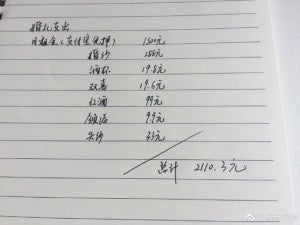 婚礼支出
租金(支付宝免押) 1500元
婚纱
酒杯 19.8元
双喜 19.6元
红酒 99元
领结 9.9元
头纱 33元
总计 2110.3元